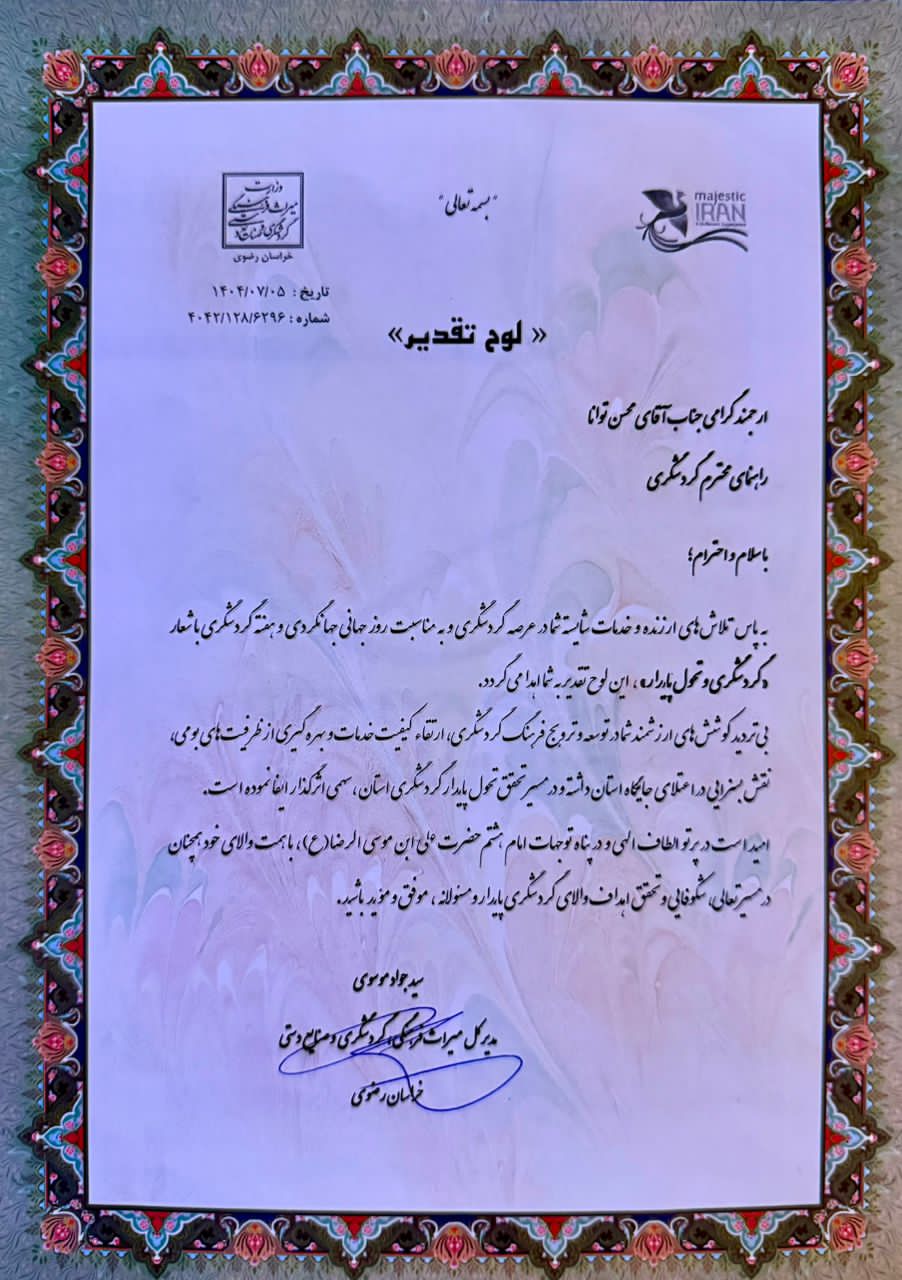 "بسمه تعالی"
majestic
IRAN
وزارت
میراث فرهنگی
گردشگری و صنایع دستی
خراسان رضوی
تاریخ : ۱۴۰۴/۰۷/۰۵
شماره : ۴۰۴۲/۱۲۸/۶۲۹۶
« لوح تقدیر»
ارجمند گرامی جناب آقای محسن توانا
راهنمای محترم گردشگری
با سلام و احترام؛
به پاس تلاش های ارزنده و خدمات شایسته شما در عرصه گردشگری و به مناسبت روز جهانی جهانگردی و هفته گردشگری با شعار
«گردشگری و تحول پایدار»، این لوح تقدیر به شما اهدا می گردد.
بی تردید کوشش های ارزشمند شما در توسعه و ترویج فرهنگ گردشگری، ارتقاء کیفیت خدمات و بهره گیری از ظرفیت های بومی،
نقش بسزایی در اعتلای جایگاه استان داشته و در مسیر تحقق تحول پایدار گردشگری استان، سهمی اثرگذار ایفا نموده است.
امید است در پرتو الطاف الهی و در پناه توجهات امام هشتم حضرت علی ابن موسی الرضا(ع)، با همت والای خود همچنان
در مسیر تعالی، شکوفایی و تحقق اهداف والای گردشگری پایدار و مسئولانه، موفق و موید باشید.
سید جواد موسوی
مدیرکل میراث فرهنگی، گردشگری و صنایع دستی
خراسان رضوی